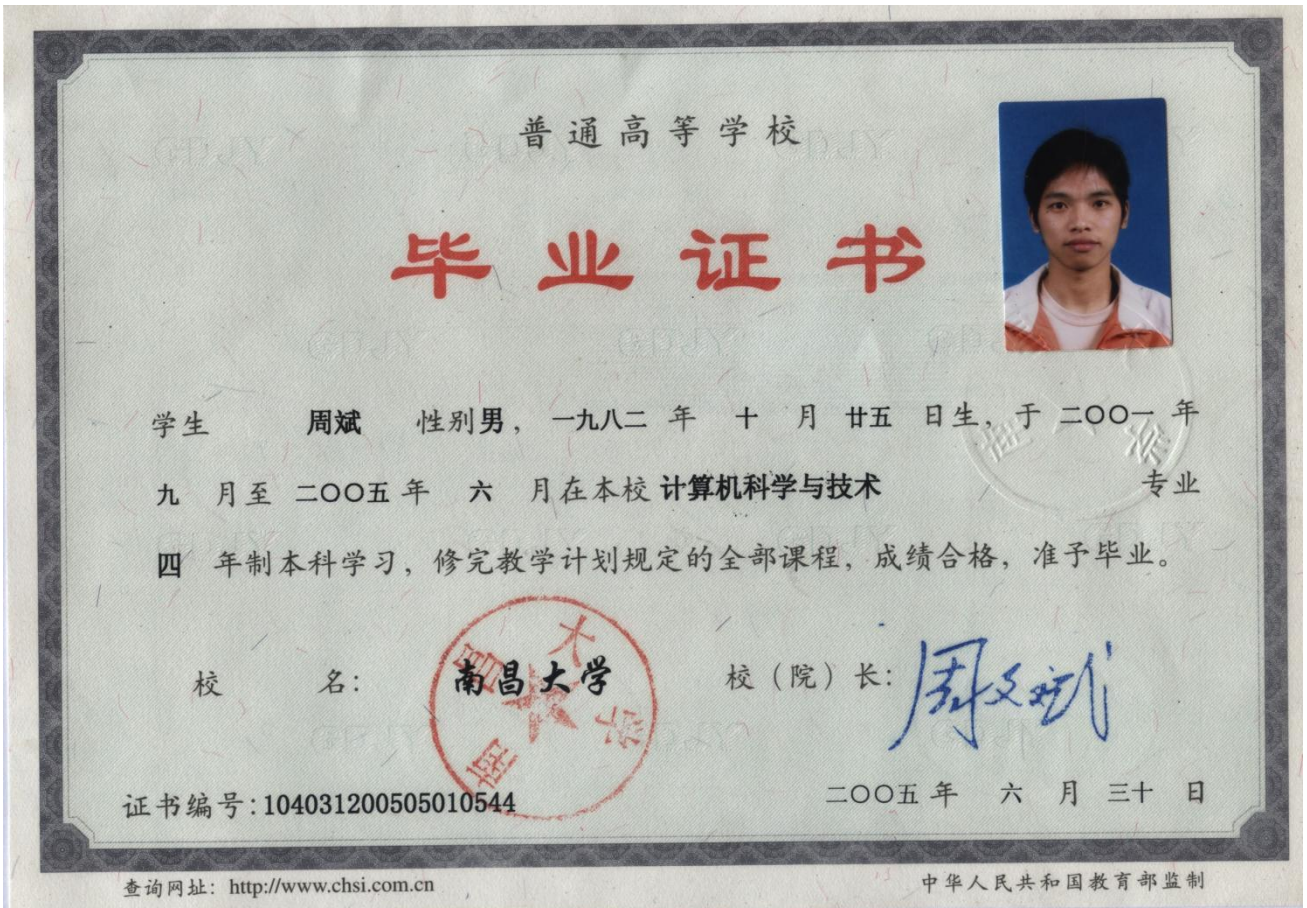 普通高等学校
毕业证书
学生 周斌 性别男，一九八二 年 十 月 廿五 日生，于 二〇〇一 年
九 月至 二〇〇五 年 六 月在本校 计算机科学与技术 专业
四 年制本科学习，修完教学计划规定的全部课程，成绩合格，准予毕业。
校 名： 南昌大学 校（院）长： 周文斌
南昌大学
证书编号：104031200505010544 二〇〇五 年 六 月 三十 日
查询网址：http://www.chsi.com.cn 中华人民共和国教育部监制